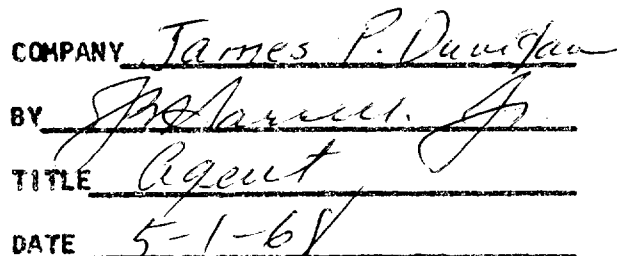 COMPANY James P. Dunigan
BY Jr.
TITLE Agent
DATE 5-1-68